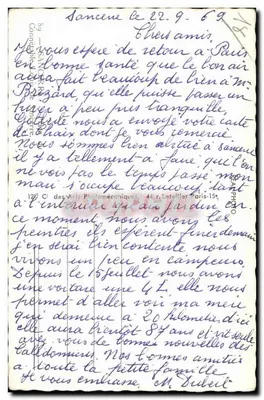 Sancerre le 22-9-69
Chers amis,
Je vous espère de retour à Paris
en bonne santé que le bon air
aura fait beaucoup de bien à Mr
Brézard, qu'elle puisse passer un
hiver à peu près tranquille
nous a envoyé votre carte
de Chaix dont je vous remercie.
Nous sommes bien à Sancerre
il y a tellement à faire que l'on
ne vois pas le temps passé mon
mari s'occupe beaucoup tant
à l'intérieur au jardin en
ce moment, nous avons les
peintres ils espèrent finir demain
j'en serai bien contente nous
vivons un peu en campeurs
Depuis le 15 juillet nous avons
une voiture une 4L elle nous
permet d'aller voir ma mère
qui demeure à 20 kilomètres d'ici
elle aura bientôt 87 ans et vit seule
avez vous de bonnes nouvelles des
Calédoniens. Nos bonnes amitiés
à toute la petite famille
Je vous embrasse, M. Dubut